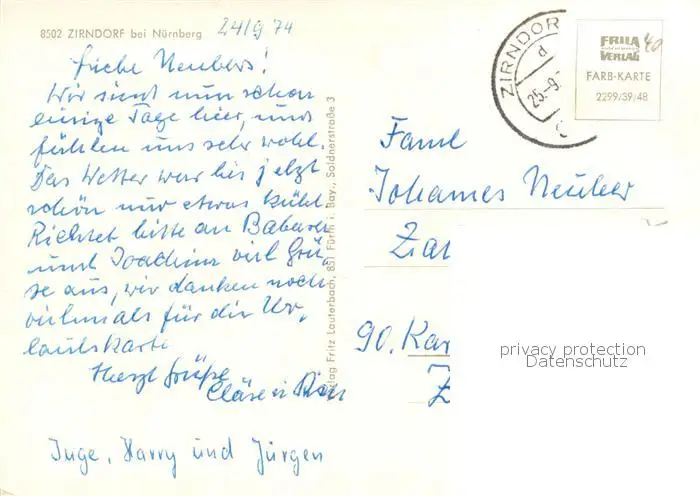 8502 ZIRNDORF bei Nürnberg
24/9 74
Liebe Neubers!
Wir sind nun schon
einige Tage hier, und
fühlen uns sehr wohl.
Das Wetter war bis jetzt
schön nur etwas kühl.
Richtet bitte an
und Joachim viel Grü-
se aus, wir danken noch
vielmals für die Ur,
laubskarte
Herzl Grüße
Inge, Harry und Jürgen
Verlag Fritz Lauterbach, 851 Fürth i. Bay., Soldnerstraße 3
ZIRNDORF
d
25.-9.
FRILA
VERLAG
40
FARB-KARTE
2299/39/48
Faml
Johannes Neuber
Zar
90. Kar
Z
privacy protection
Datenschutz